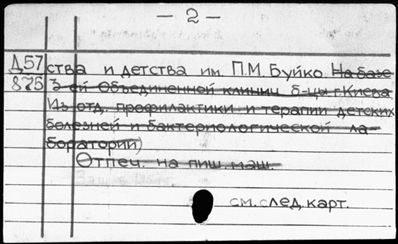 — 2 —
Д57
875
ства и детства им. П.М. Буйко. На базе
3-ей Объединенной клиниц. б-цы г. Киева
Из отд. профилактики и терапии детских
болезней и бактериологической ла-
боратории)
Отпеч. на пиш. маш.
см. след. карт.